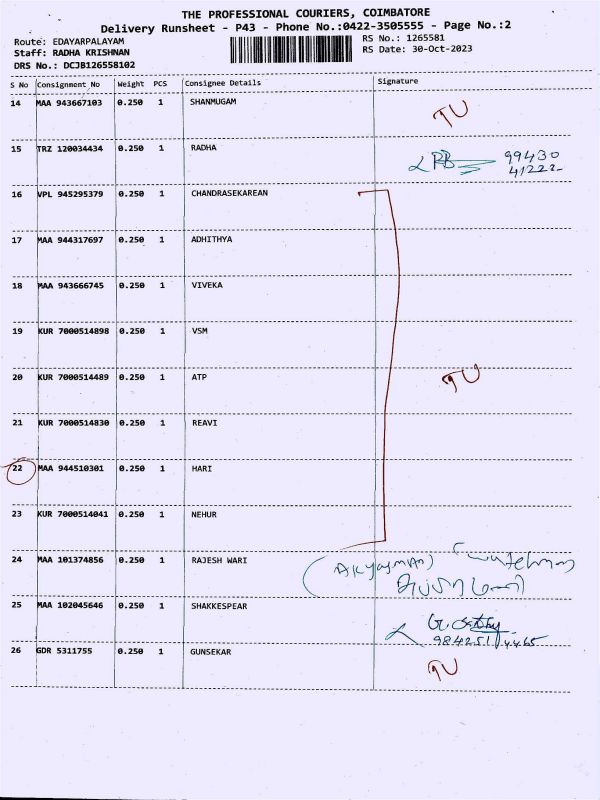 THE PROFESSIONAL COURIERS, COIMBATORE
Delivery Runsheet - P43 - Phone No.:0422-3505555 - Page No.:2
Route: EDAYARPALAYAM RS No.: 1265581
Staff: RADHA KRISHNAN RS Date: 30-Oct-2023
DRS No.: DCJB126558102
S No Consignment_No Weight PCS Consignee Details Signature
14 MAA 943667103 0.250 1 SHANMUGAM TU
15 TRZ 120034434 0.250 1 RADHA 99430
41222
16 VPL 945295379 0.250 1 CHANDRASEKAREAN
17 MAA 944317697 0.250 1 ADHITHYA
18 MAA 943666745 0.250 1 VIVEKA
19 KUR 7000514898 0.250 1 VSM
20 KUR 7000514489 0.250 1 ATP TU
21 KUR 7000514830 0.250 1 REAVI
22 MAA 944510301 0.250 1 HARI
23 KUR 7000514041 0.250 1 NEHUR
24 MAA 101374856 0.250 1 RAJESH WARI
25 MAA 102045646 0.250 1 SHAKKESPEAR
26 GDR 5311755 0.250 1 GUNSEKAR TU